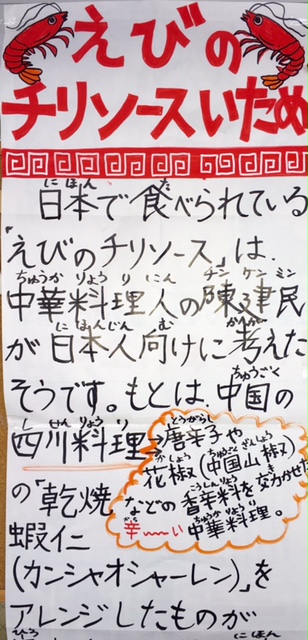 えびの
チリソースいため
日本で食べられている
「えびのチリソース」は、
中華料理人の陳建民
が日本人向けに考えた
そうです。もとは、中国の
四川料理
唐辛子や
花椒(中国山椒)
などの香辛料を効かせた
辛〜い中華料理。
の「乾焼
蝦仁
(カンシャオシャーレン)」を
アレンジしたものが